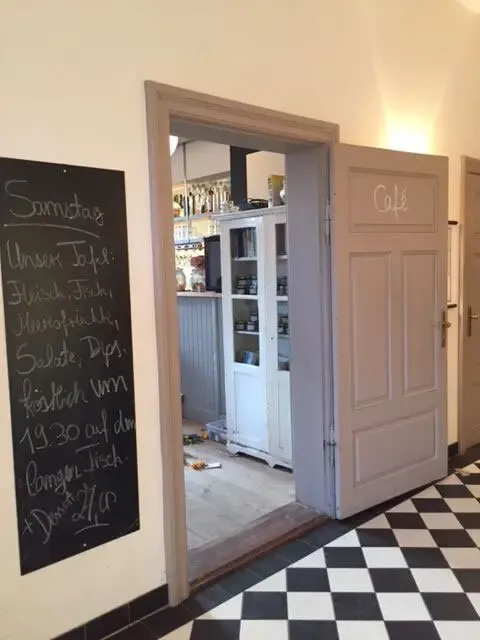 Samstag
Unsere Tafel:
Fleisch, Fisch,
Meeresfrüchte,
Salate, Dips.
köstlich um
19.30 auf dem
langen Tisch.
+ Dessert
Café